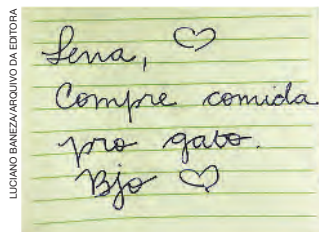 LUCIANO BANEZA/ARQUIVO DA EDITORA
Lena, ♡
Compre comida
pro gato.
Bjo ♡